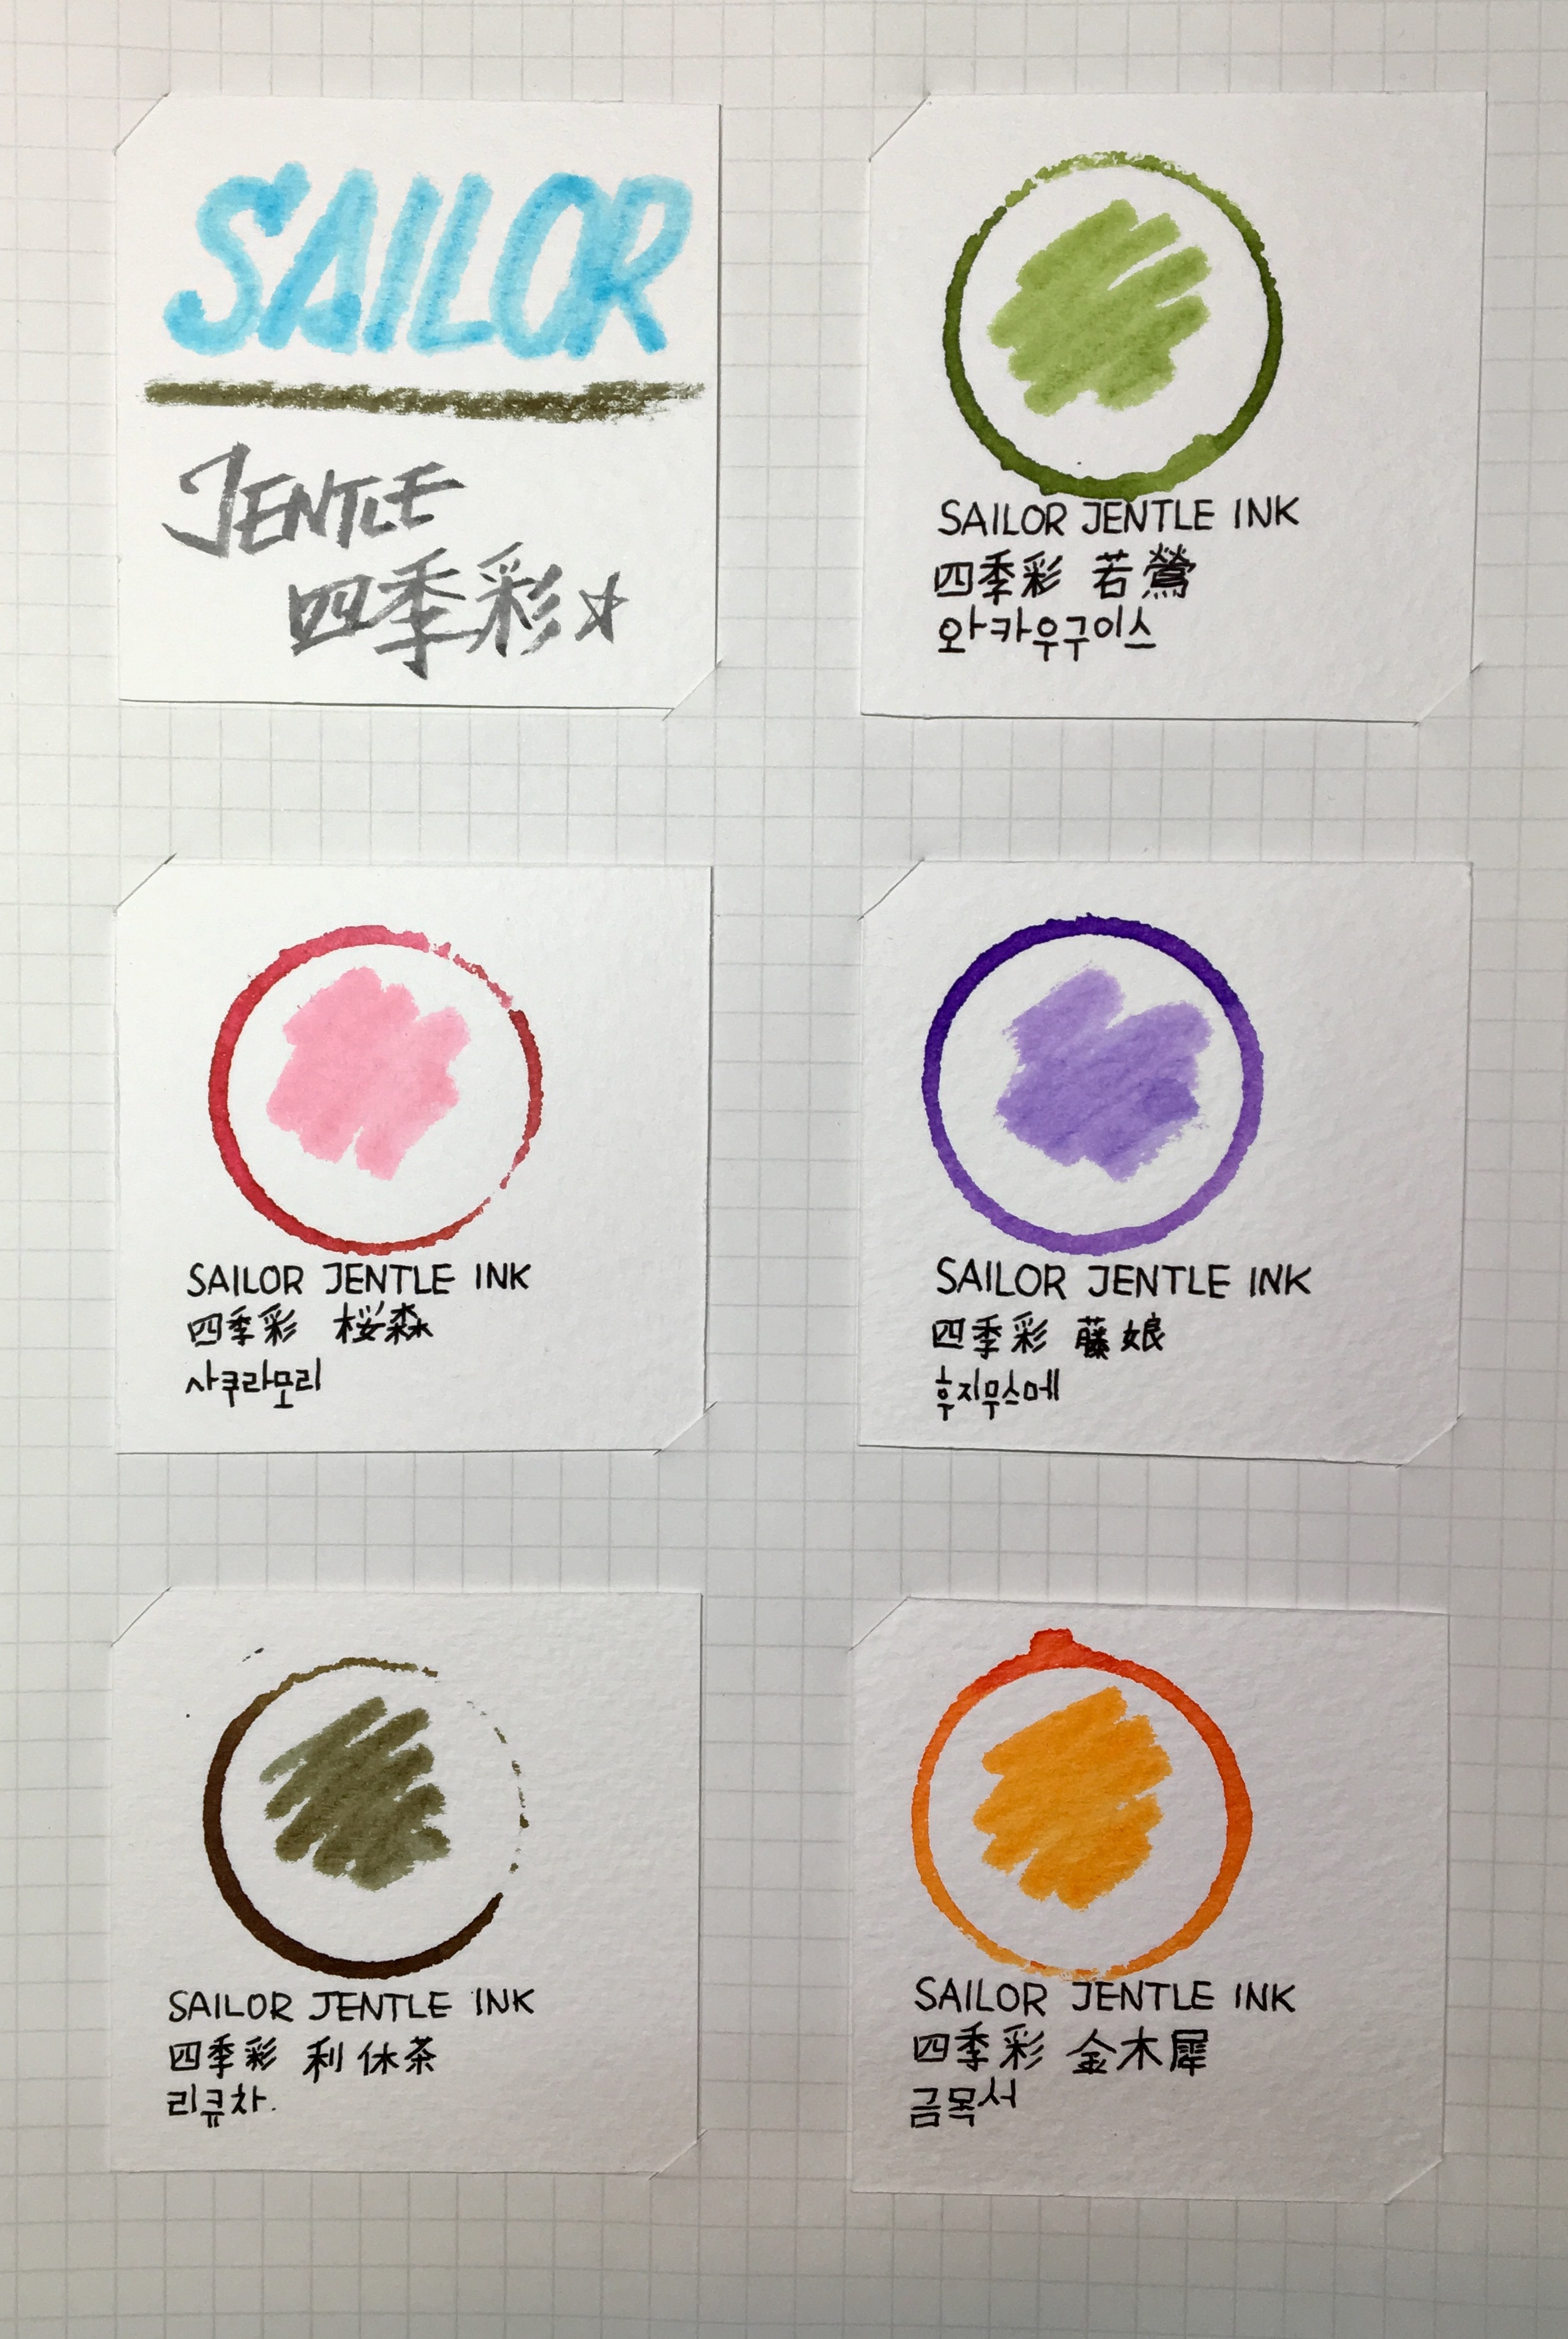 SAILOR
JENTLE
四季彩☆
SAILOR JENTLE INK
四季彩 若鶯
와카우구이스
SAILOR JENTLE INK
四季彩 桜森
사쿠라모리
SAILOR JENTLE INK
四季彩 藤娘
후지무스메
SAILOR JENTLE INK
四季彩 利休茶
리큐차.
SAILOR JENTLE INK
四季彩 金木犀
금목서